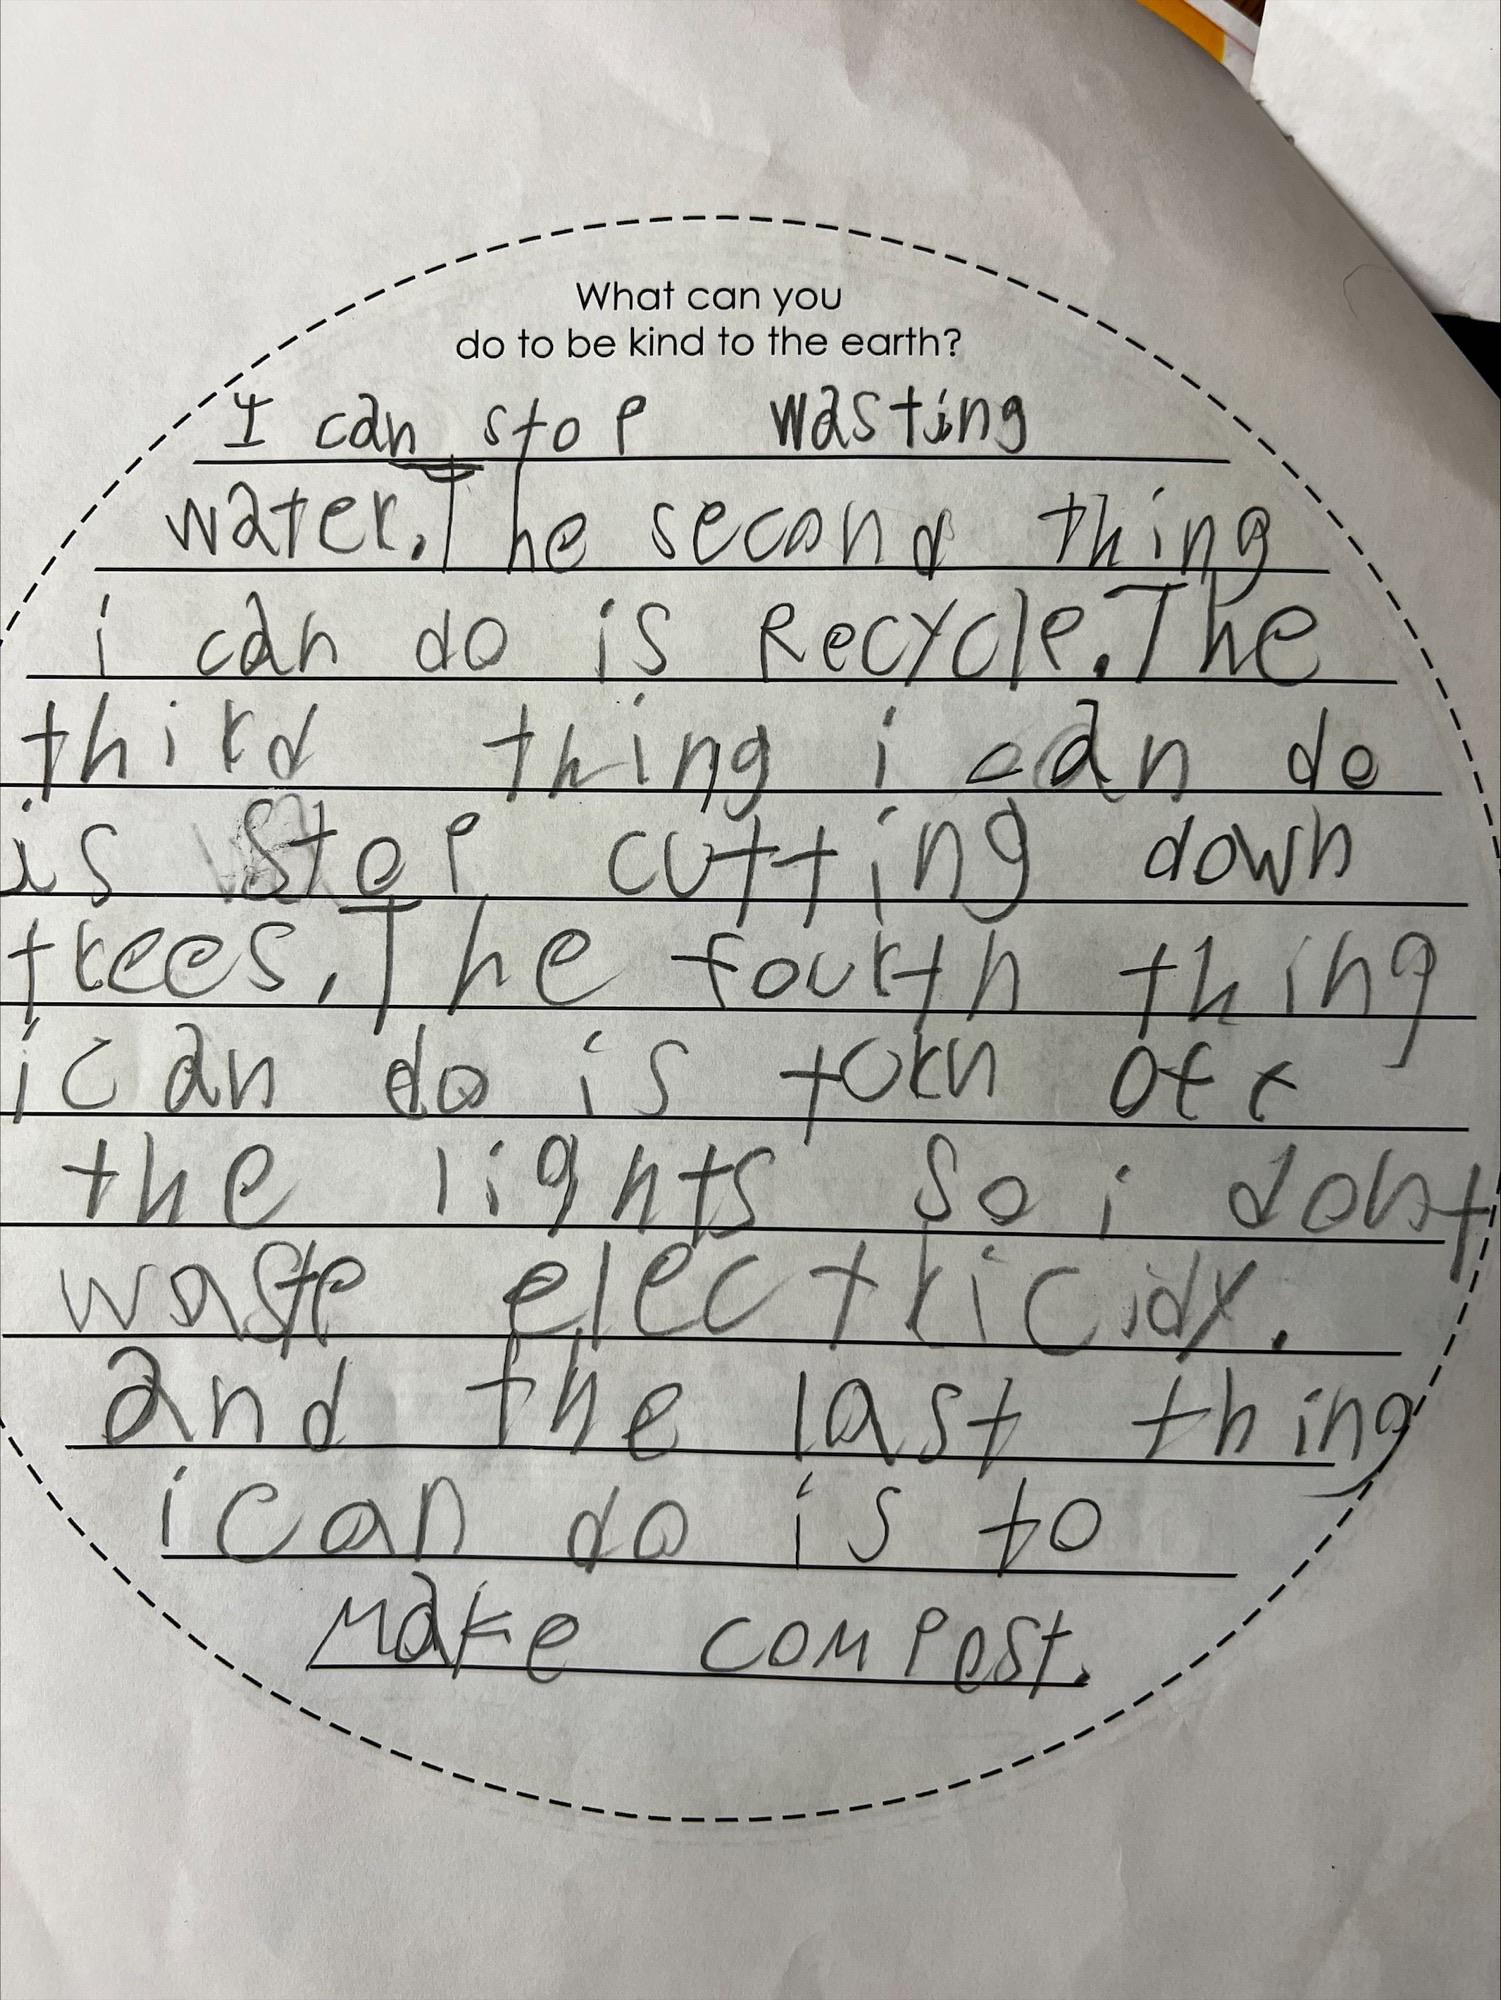 What can you
do to be kind to the earth?
I can stop wasting
water. The second thing
i can do is Recycle. The
third thing i can do
is stop cutting down
trees. The fourth thing
i can do is torn off
the lights so i dont
waste electricidy.
and the last thing
i can do is to
make compost.